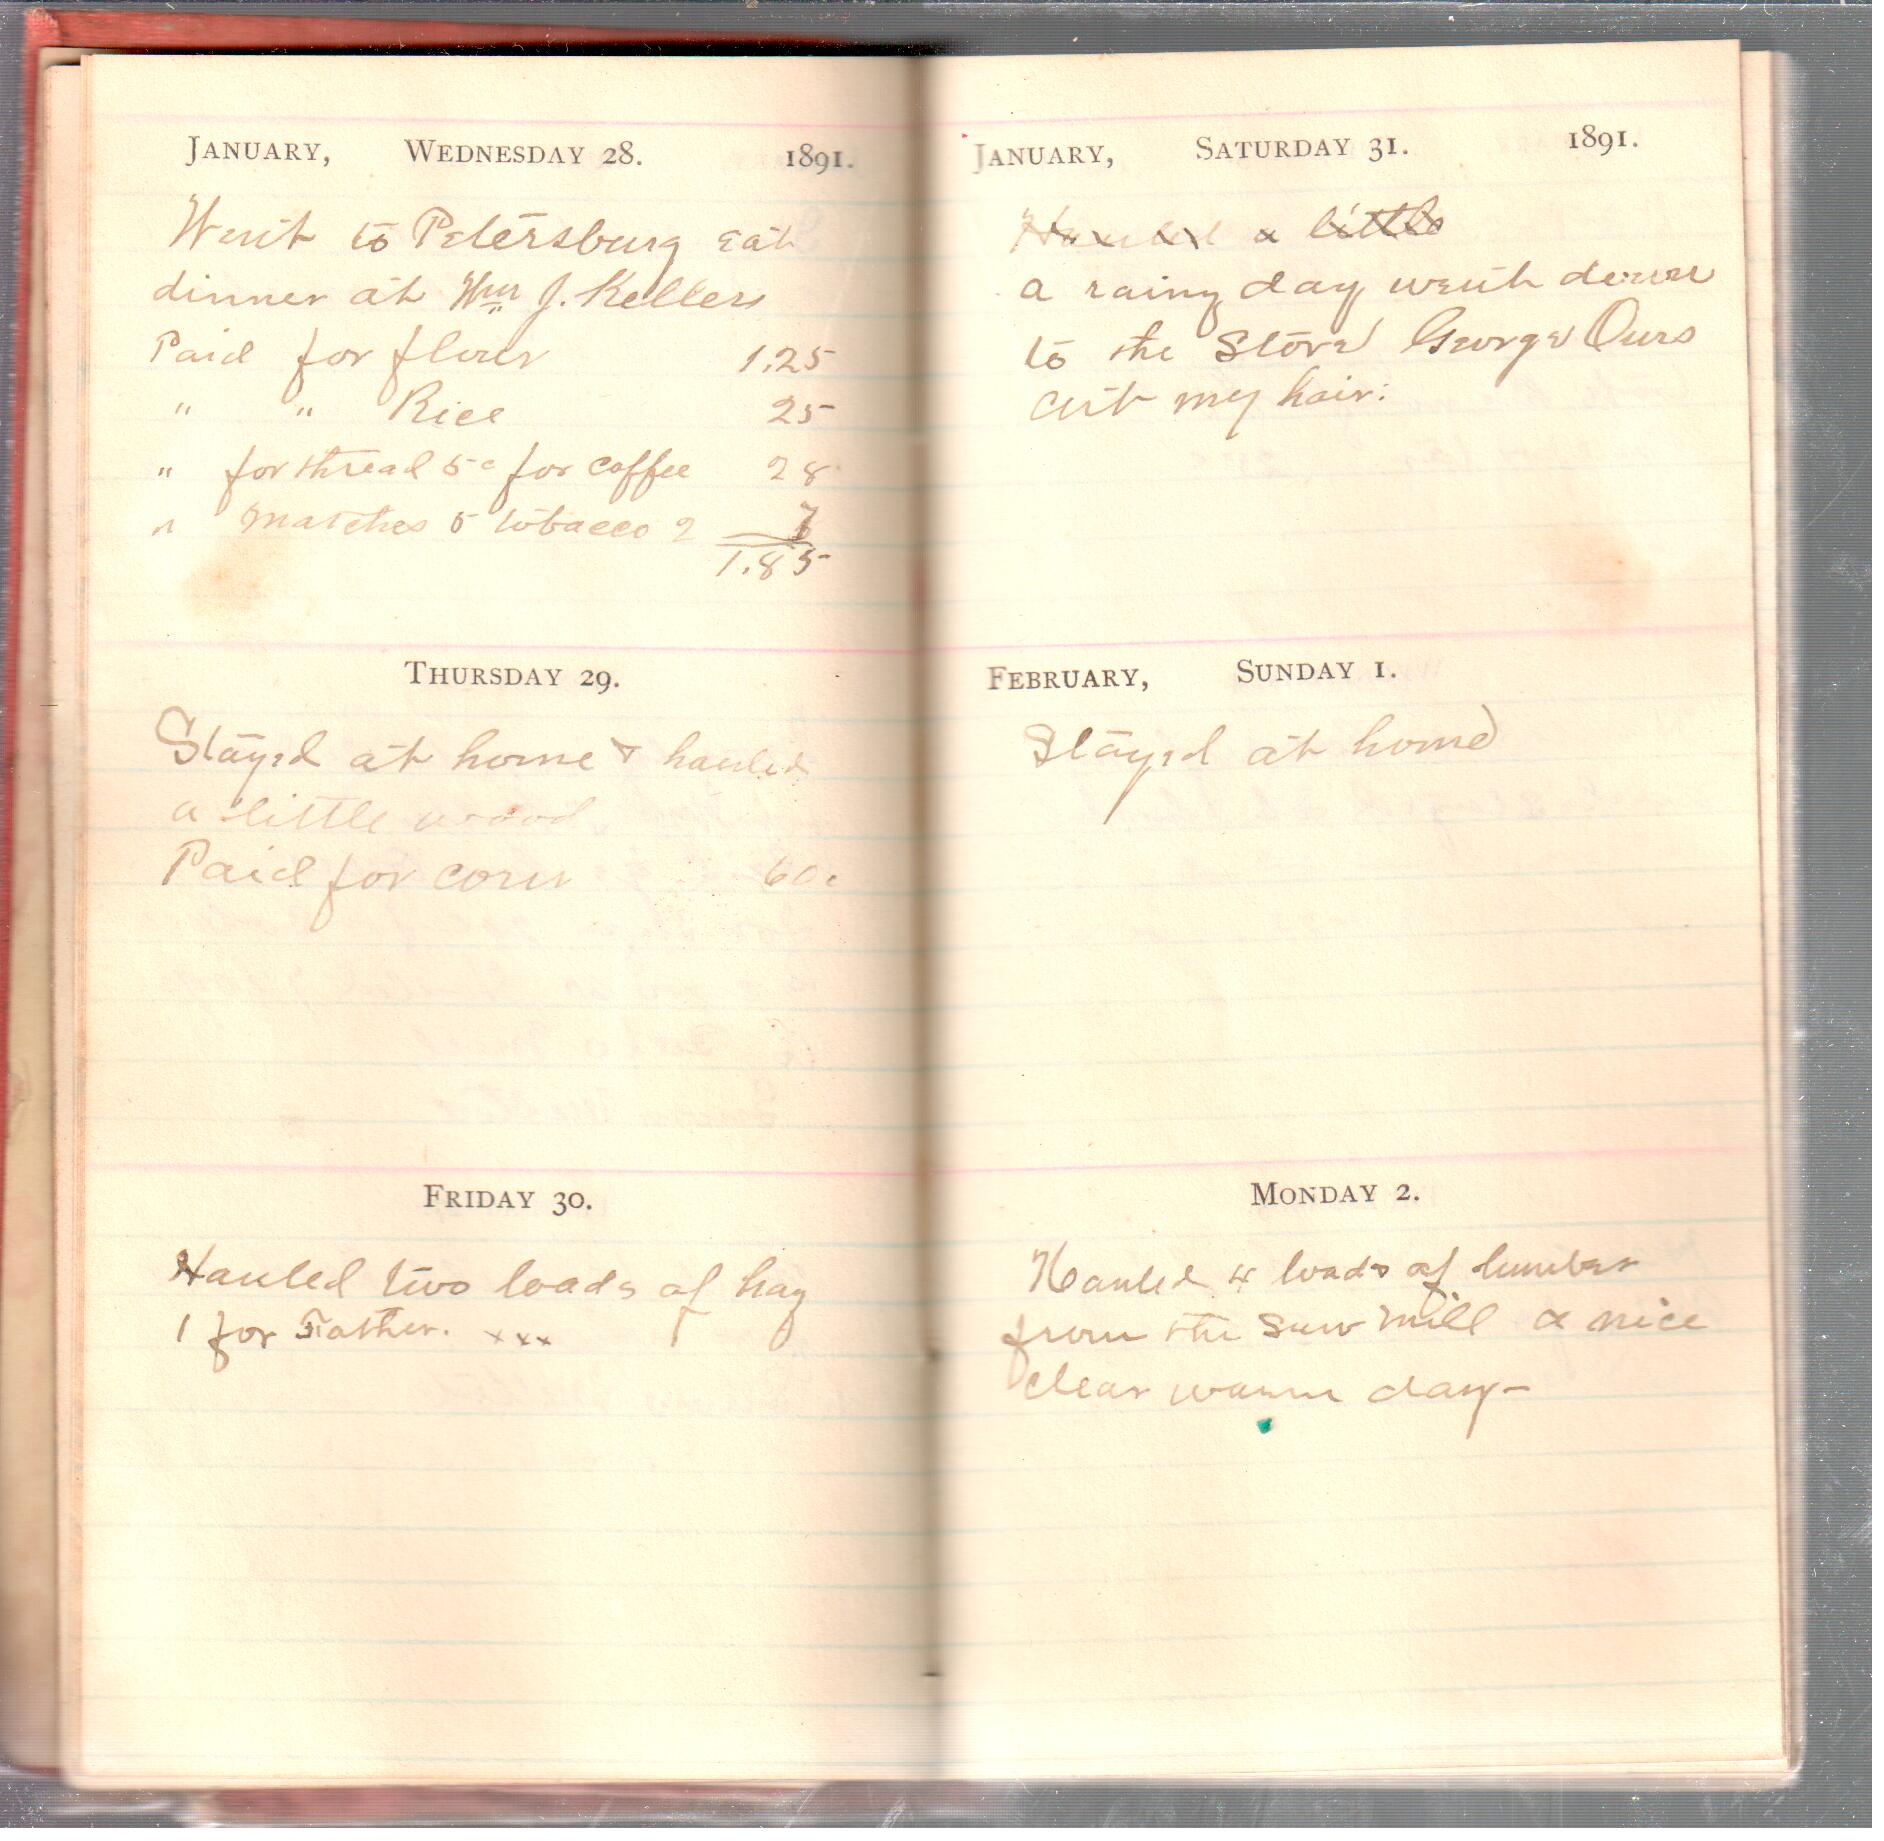 JANUARY, WEDNESDAY 28. 1891.
Went to Petersburg eat
dinner at Wm J. Kellers
Paid for flour 1.25
" " Rice 25
" for thread 5c for coffee 28
" matches 5 tobacco 2 7
1.85
THURSDAY 29.
Stayed at home & hauled
a little wood
Paid for corn 60c
FRIDAY 30.
Hauled two loads of hay
1 for Father. xxx
JANUARY, SATURDAY 31. 1891.
Hauled a little
a rainy day went down
to the Store George Ours
cut my hair:
FEBRUARY, SUNDAY 1.
Stayed at home
MONDAY 2.
Hauled 4 loads of lumber
from the saw mill a nice
clear warm day-